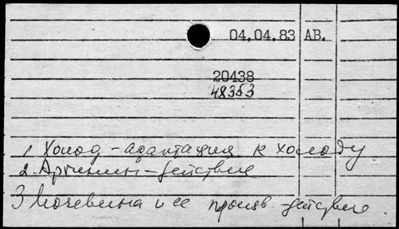 04.04.83 АВ.
20438
48353
1 Холод - адаптация к холоду
2. Аргинин - действие
3 Мочевина и ее произв. действие.